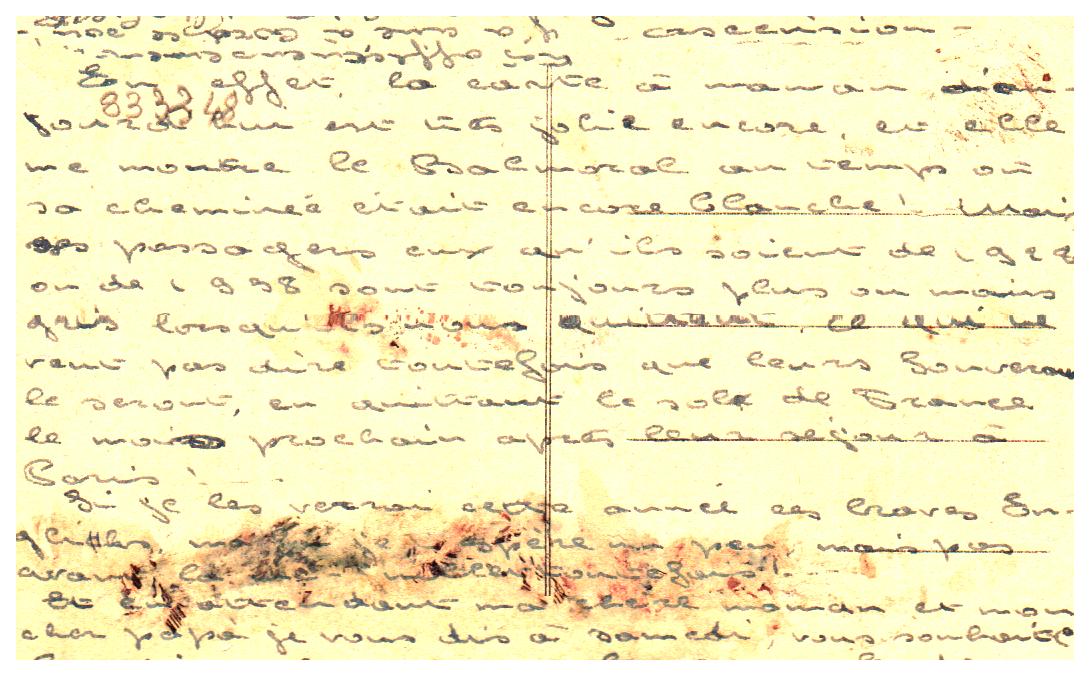 ascension
En effet, la carte à maman d'au-
83 33 48
jourd'hui est très jolie encore, et elle
me montre le Balmoral au temps où
sa cheminée était encore blanche! Mais
ses passagers eux qu'ils soient de 1928
ou de 1938 sont toujours plus ou moins
gris lorsqu'ils nous quittent, ce qui ne
veut pas dire toutefois que leurs Souverains
le seront, en quittant le sol de France
le mois prochain après leur séjour à
Paris!
Si je les verrai cette année ces braves En-
glishs, je espère un peu, mais pas
avant la toutefois!
Et en attendant ma chère maman et mon
cher papa je vous dis à samedi, vous souhaite